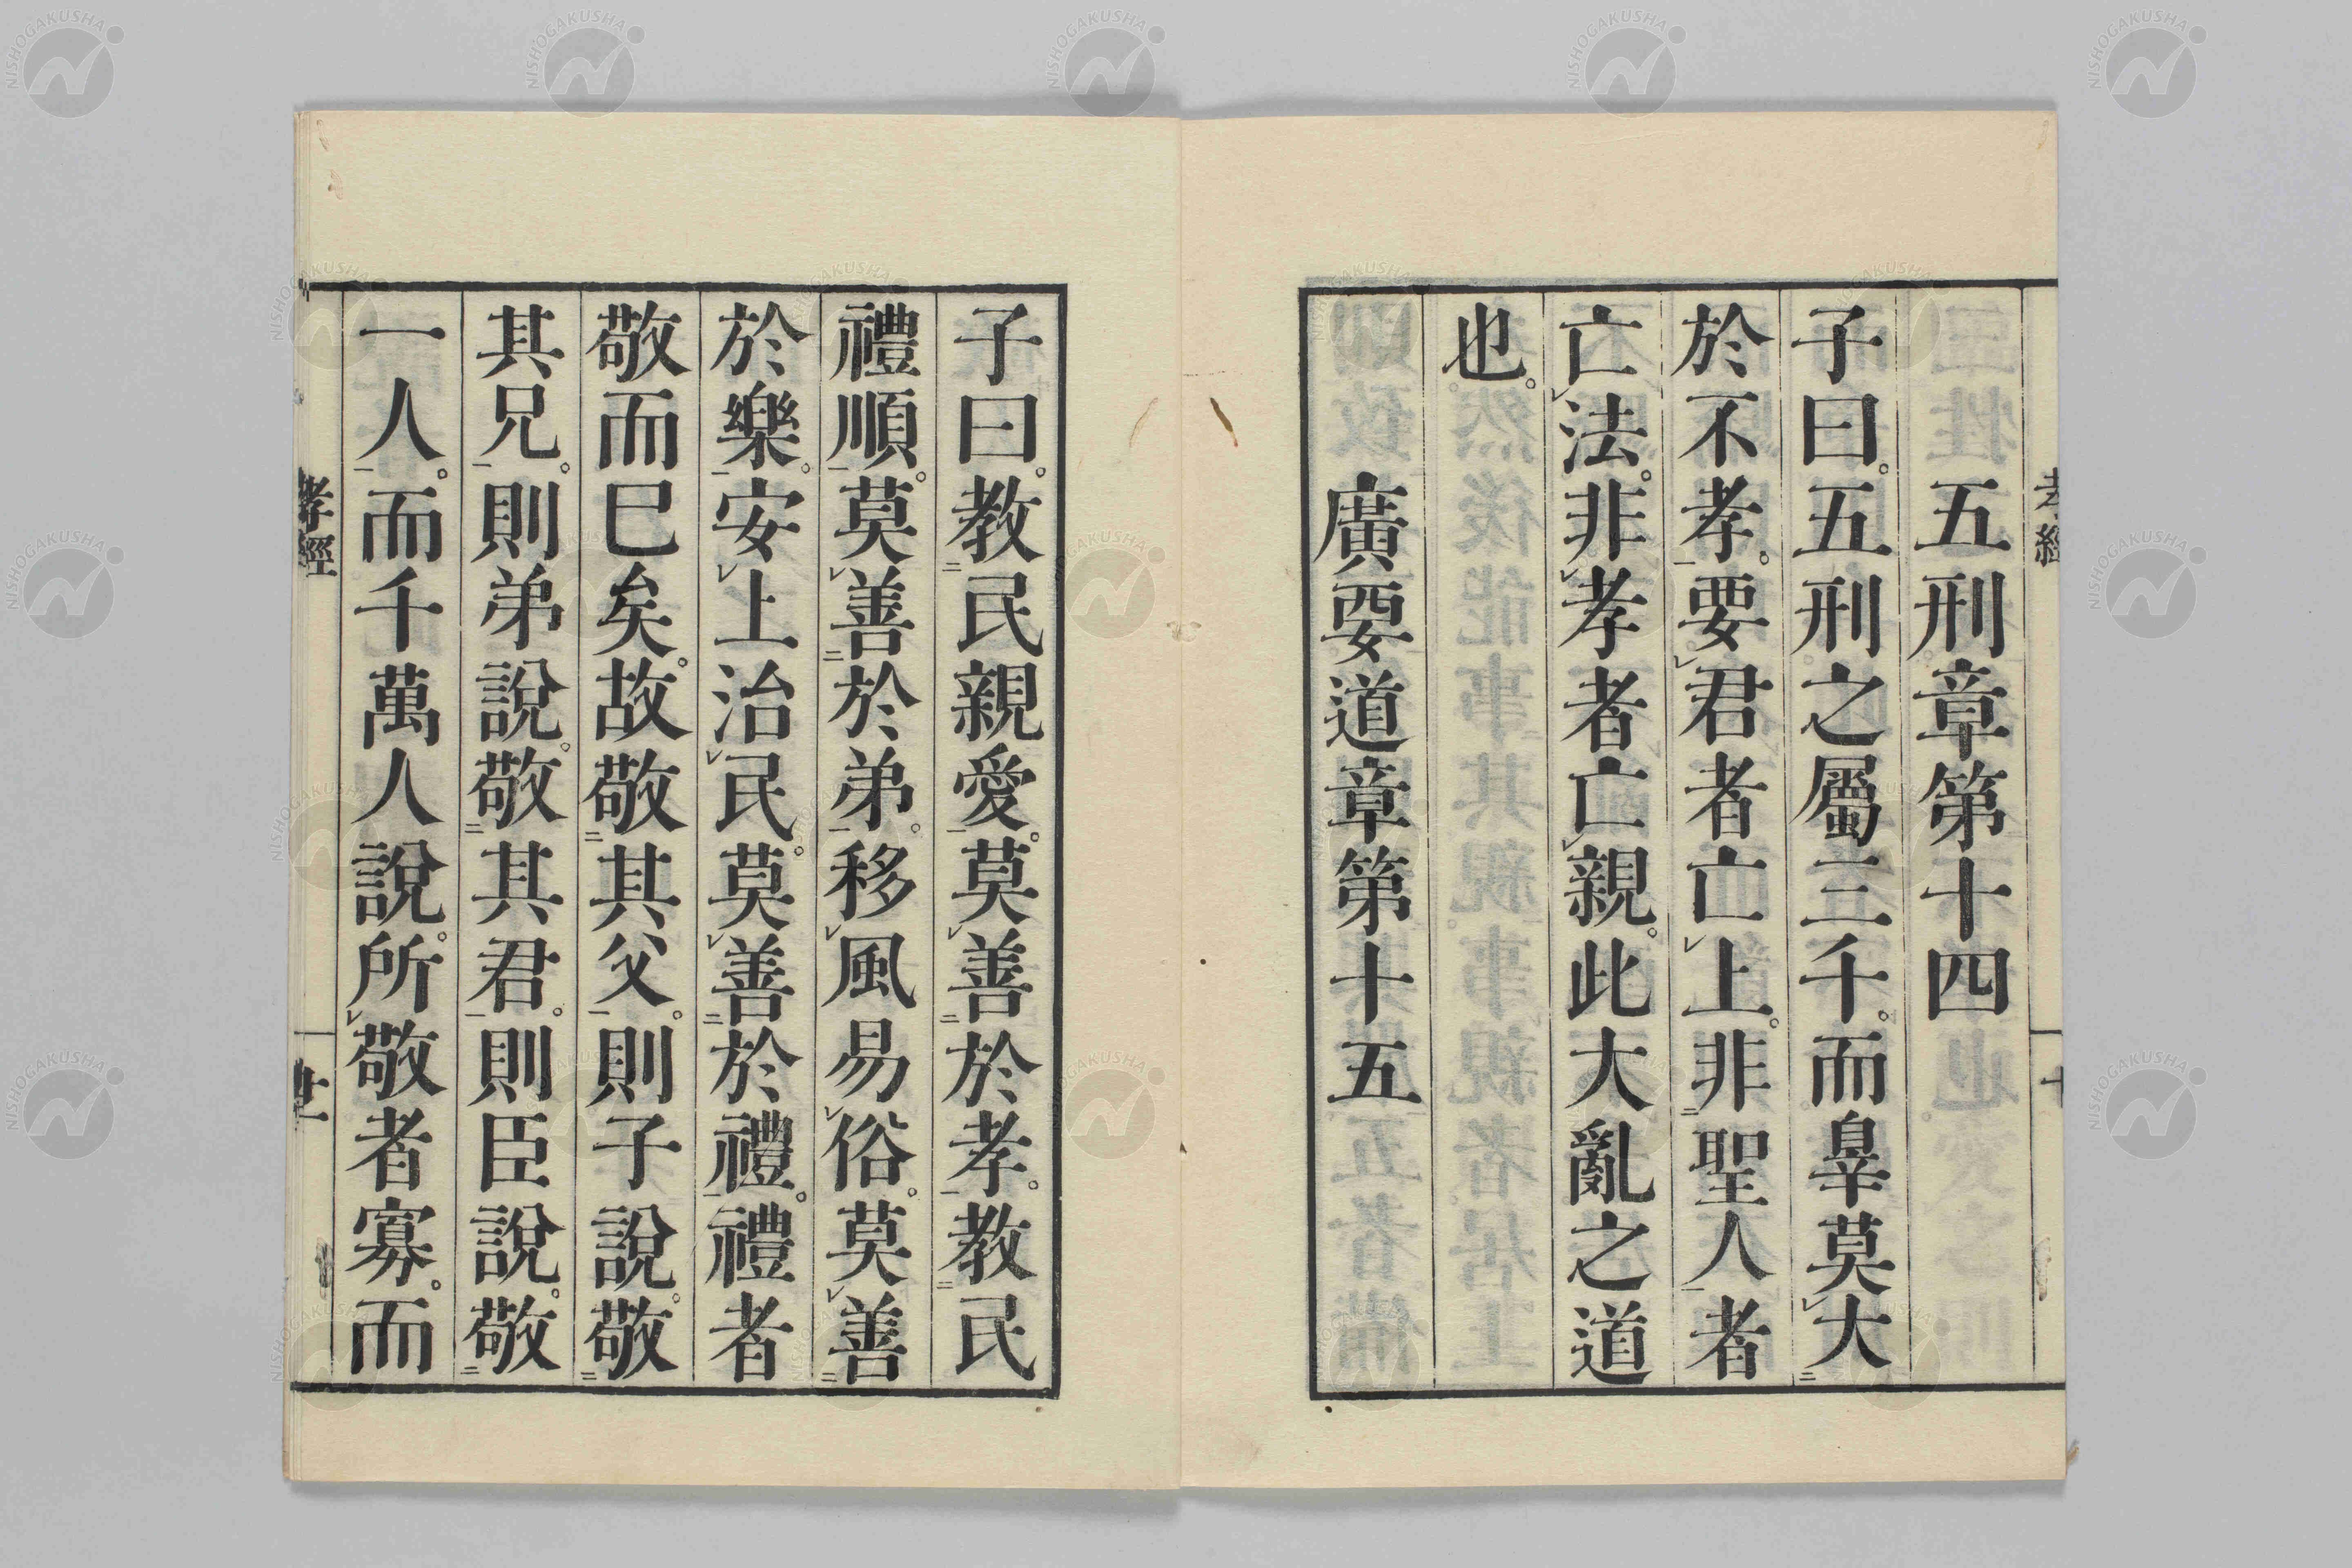 五刑章第十四
子曰。五刑之屬三千。而辠莫大
於不孝。要君者亡上。非聖人者
亡法。非孝者亡親。此大亂之道
也。
廣要道章第十五
子曰。教民親愛。莫善於孝。教民
禮順。莫善於弟。移風易俗。莫善
於樂。安上治民。莫善於禮。禮者
敬而巳矣。故敬其父。則子說。敬
其兄。則弟說。敬其君。則臣說。敬
一人。而千萬人說。所敬者寡。而
孝經
NISHOGAKUSHA